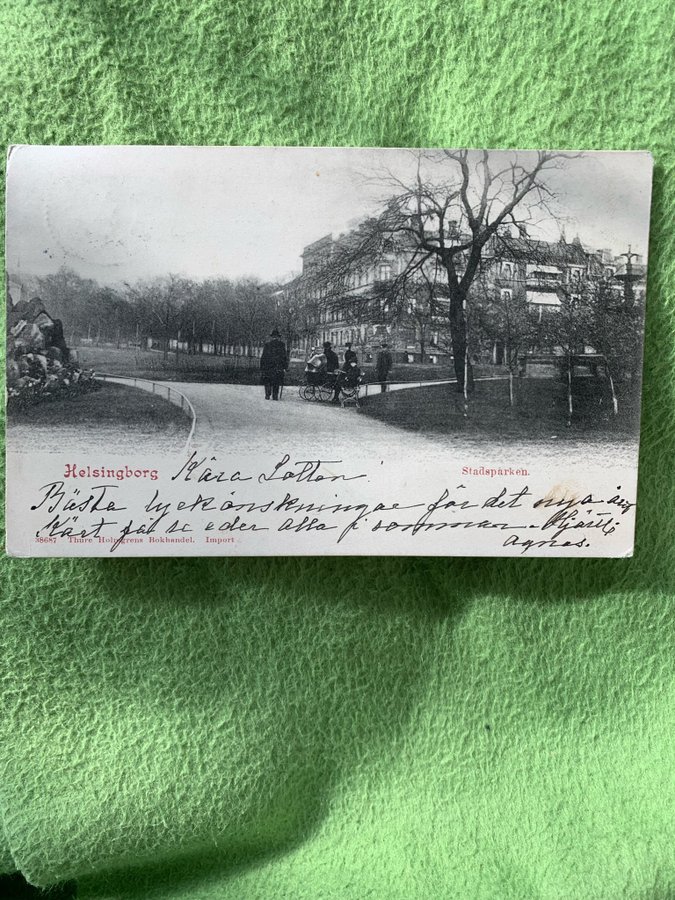 Helsingborg Kära Lotten! Stadsparken.
Bästa lyckönskningar för det nya året
Kärt få se eder alla i sommar. Hjärtl.
38687 Thure Holmgrens Bokhandel. Import.
Agnes.